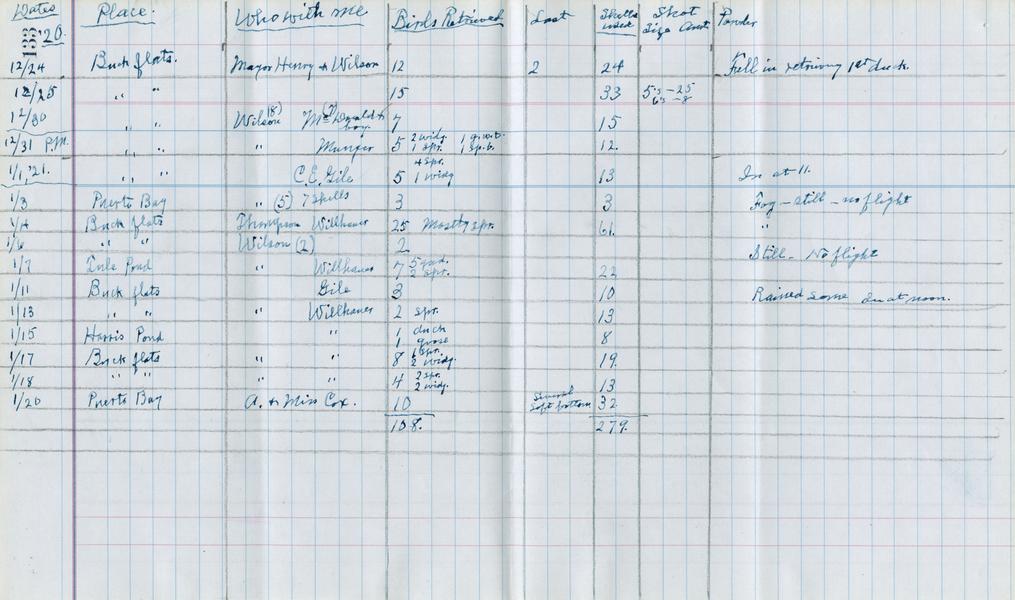 Dates Place. Who with me Birds Retrieved Lost Shells used Shot Size Amt Powder
133 '20.
12/24 Buck flats. Mayor Henry & Wilson 12 2 24 Fell in retriving 1st duck.
12/25 " " 15 33 5s - 25
6s - 8
12/30 " " Wilson (8) McDonald & boy. (7) 7 15
12/31 P.M. " " " Munger 5 2 widg. 1 g.w.t. 1 spr. 1 sp.b. 12.
1/1,'21. " " C.E. Gile 5 4 spr. 1 widg 13 In at 11.
1/3 Puerto Bay " (5) 7 shells 3 3 Fog - still - no flight
1/4 Buck flats Thompson Willhauer 25 Mostly spr. 61. "
1/6 " " Wilson (2) 2 Still - No flight
1/7 Tule Pond " Willhauer 7 5 gad. 2 spr. 22
1/11 Buck flats Gile 3 10 Rained some In at noon.
1/13 " " " Willhauer 2 spr. 13
1/15 Harris Pond " 1 duck 8
1 goose
1/17 Buck flats " " 8 6 spr. 2 widg. 19.
1/18 " " " " 4 2 spr. 2 widg. 13
1/20 Puerto Bay A. & Miss Cox. 10 Several Soft bottom 32
108. 279.